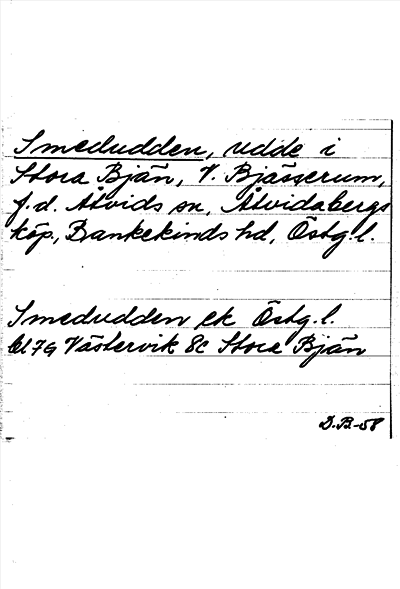 Smedudden, udde i
Stora Bjän, V. Bjässerum,
f.d. Åtvids sn, Åtvidabergs
köp, Bankekinds hd, Östg.l.
Smedudden ek Östg.l.
bl 7G Västervik 8c Stora Bjän
D.B-58